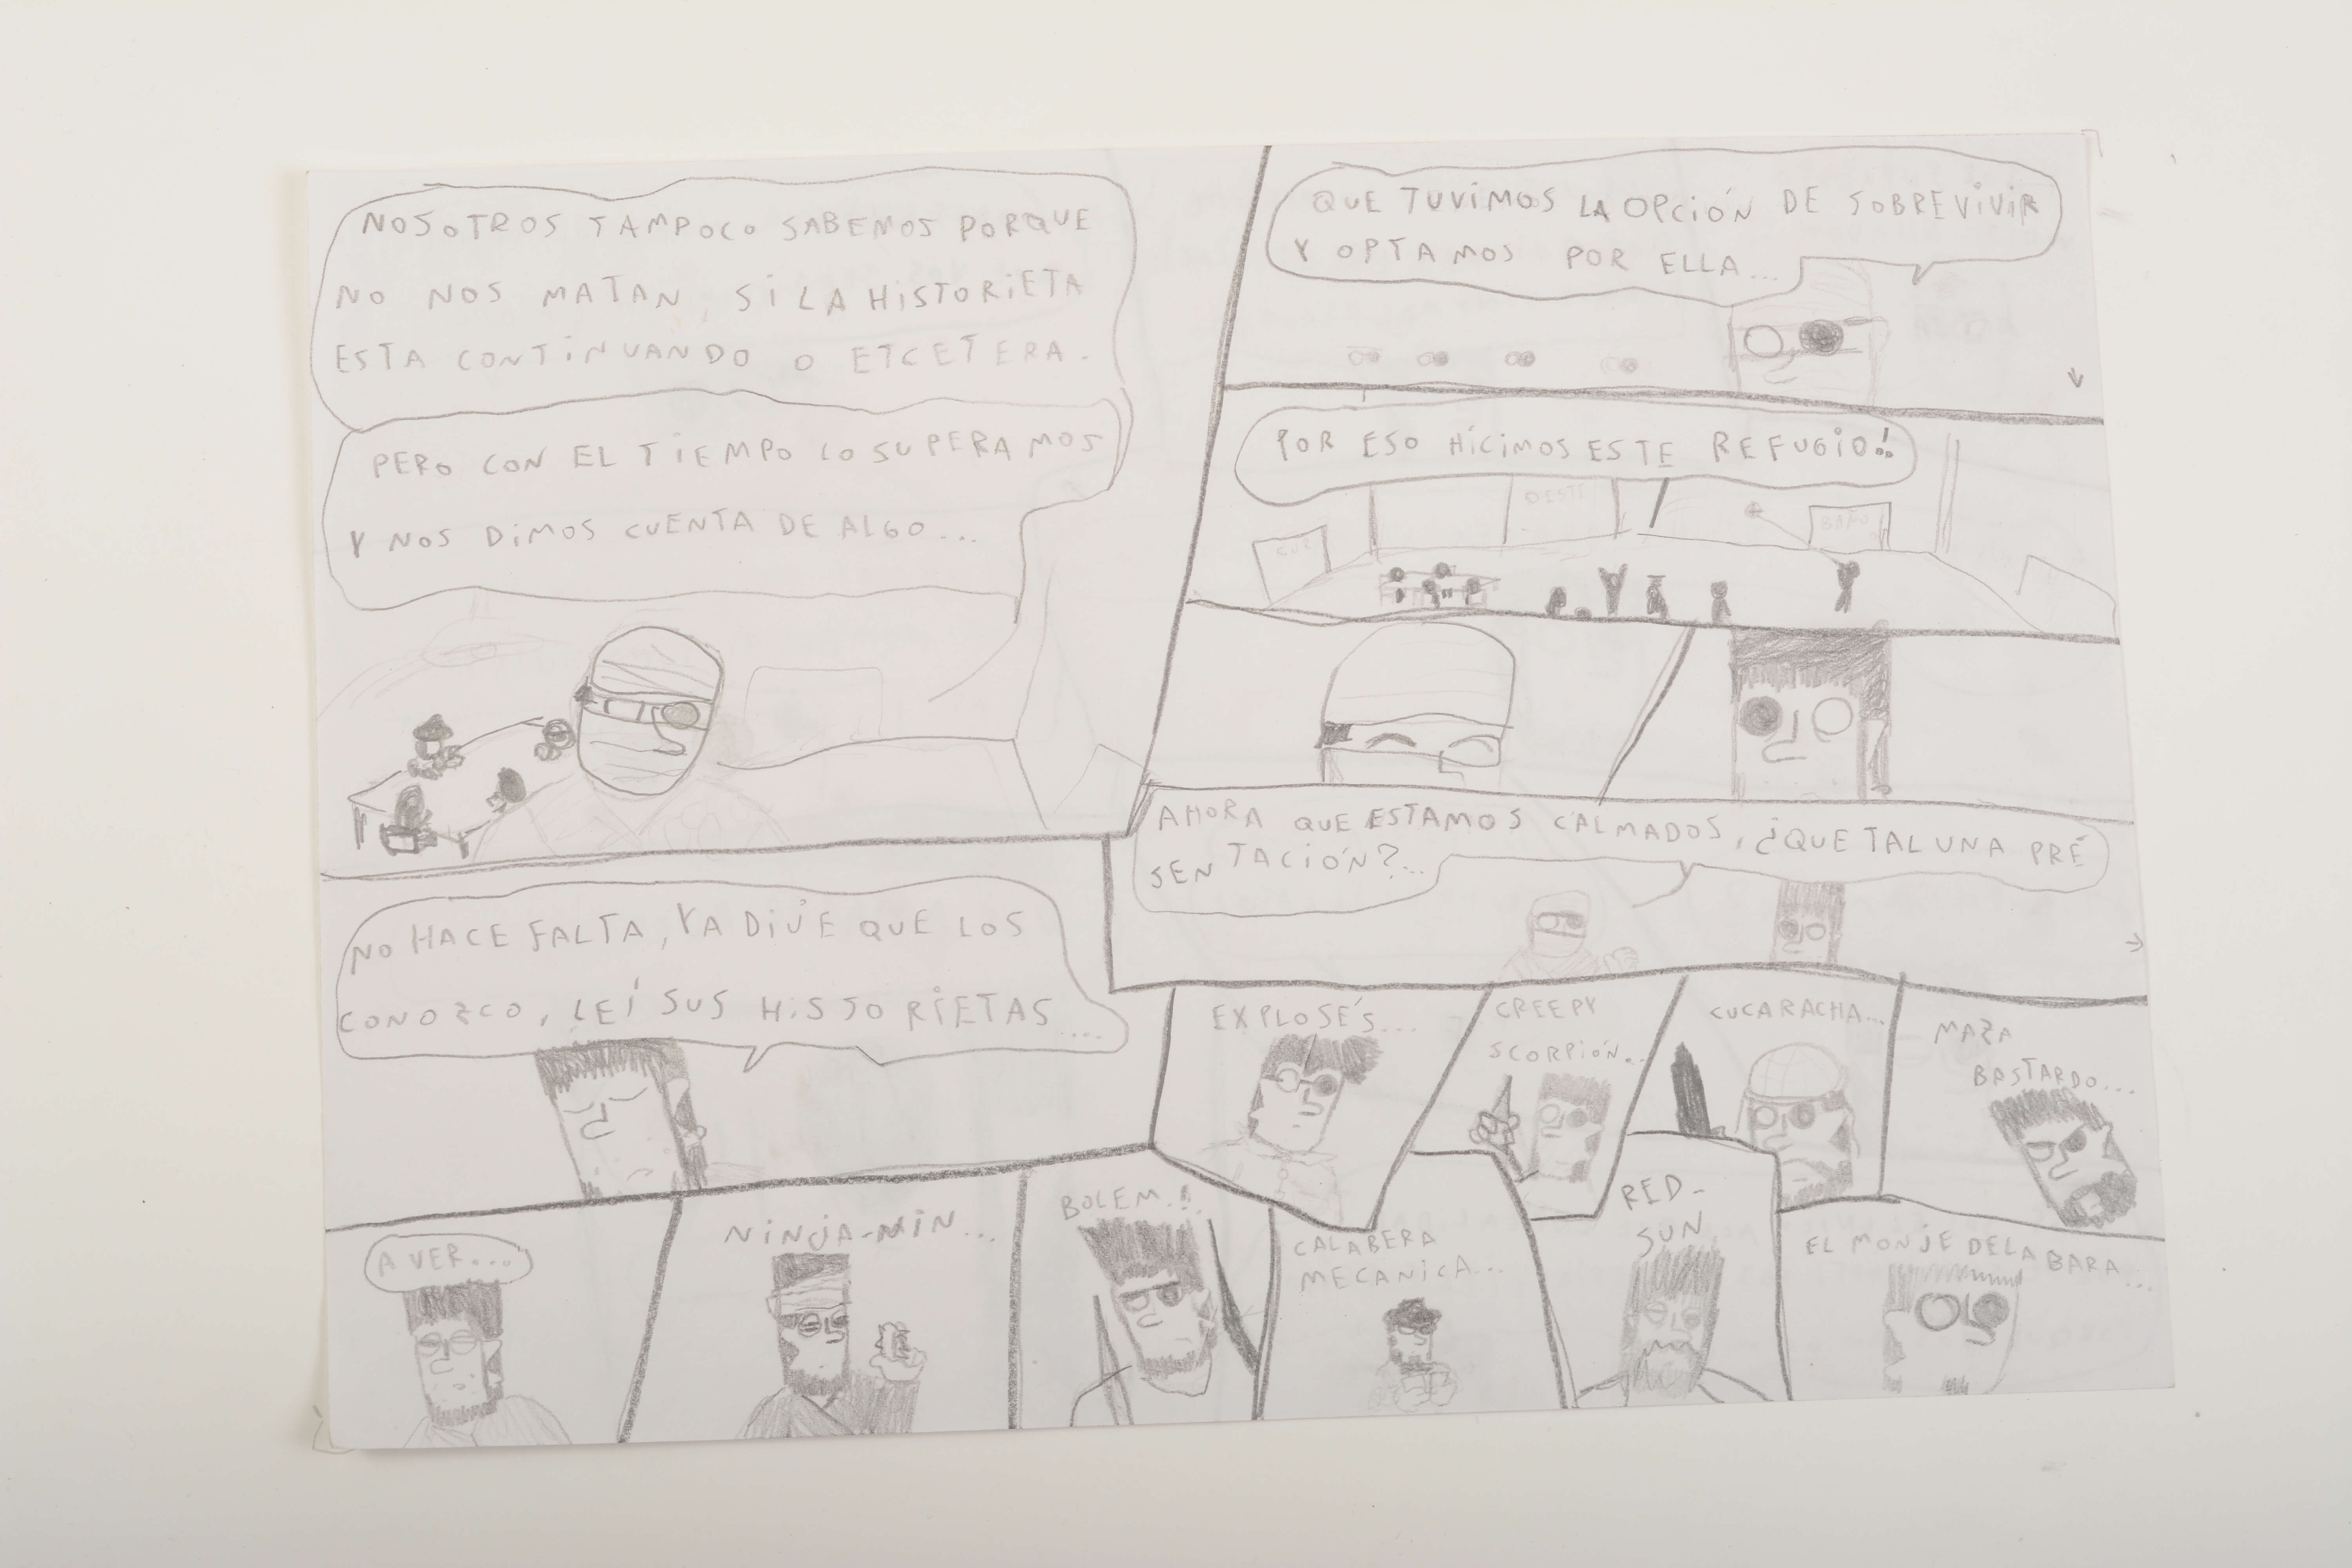 NOSOTROS TAMPOCO SABEMOS PORQUE
NO NOS MATAN, SI LA HISTORIETA
ESTA CONTINUANDO O ETCETERA.
PERO CON EL TIEMPO LO SUPERAMOS
Y NOS DIMOS CUENTA DE ALGO...
QUE TUVIMOS LA OPCIÓN DE SOBREVIVIR
Y OPTAMOS POR ELLA...
POR ESO HÍCIMOS ESTE REFUGIO!!
OESTE
BAÑO
AHORA QUE ESTAMOS CALMADOS, ¿QUE TAL UNA PRE
SENTACIÓN?...
NO HACE FALTA, YA DIJE QUE LOS
CONOZCO, LEÍ SUS HISTORIETAS....
EXPLOSÉS...
CREEPY
SCORPIÓN...
CUCARACHA...
MAZA
BASTARDO...
A VER....
NINJA-MIN...
BOLEM!!
CALABERA
MECANICA...
RED-
SUN
EL MONJE DE LA BARA...